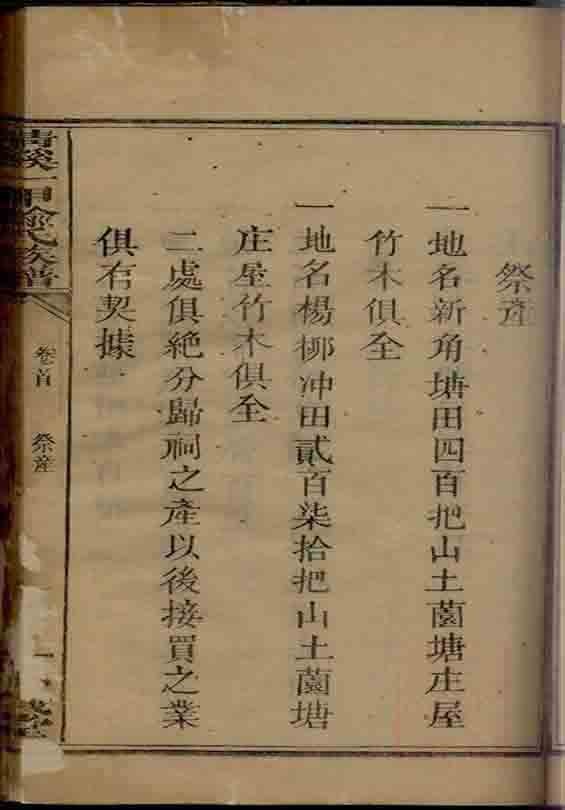 祭產
一地名新角塘田四百把山土薗塘庄屋
竹木俱全
一地名楊栁冲田貳百柒拾把山土薗塘
庄屋竹木俱全
二處俱絶分歸祠之產以後接買之業
俱有契據
清溪一甲俞氏族譜
卷首
祭產